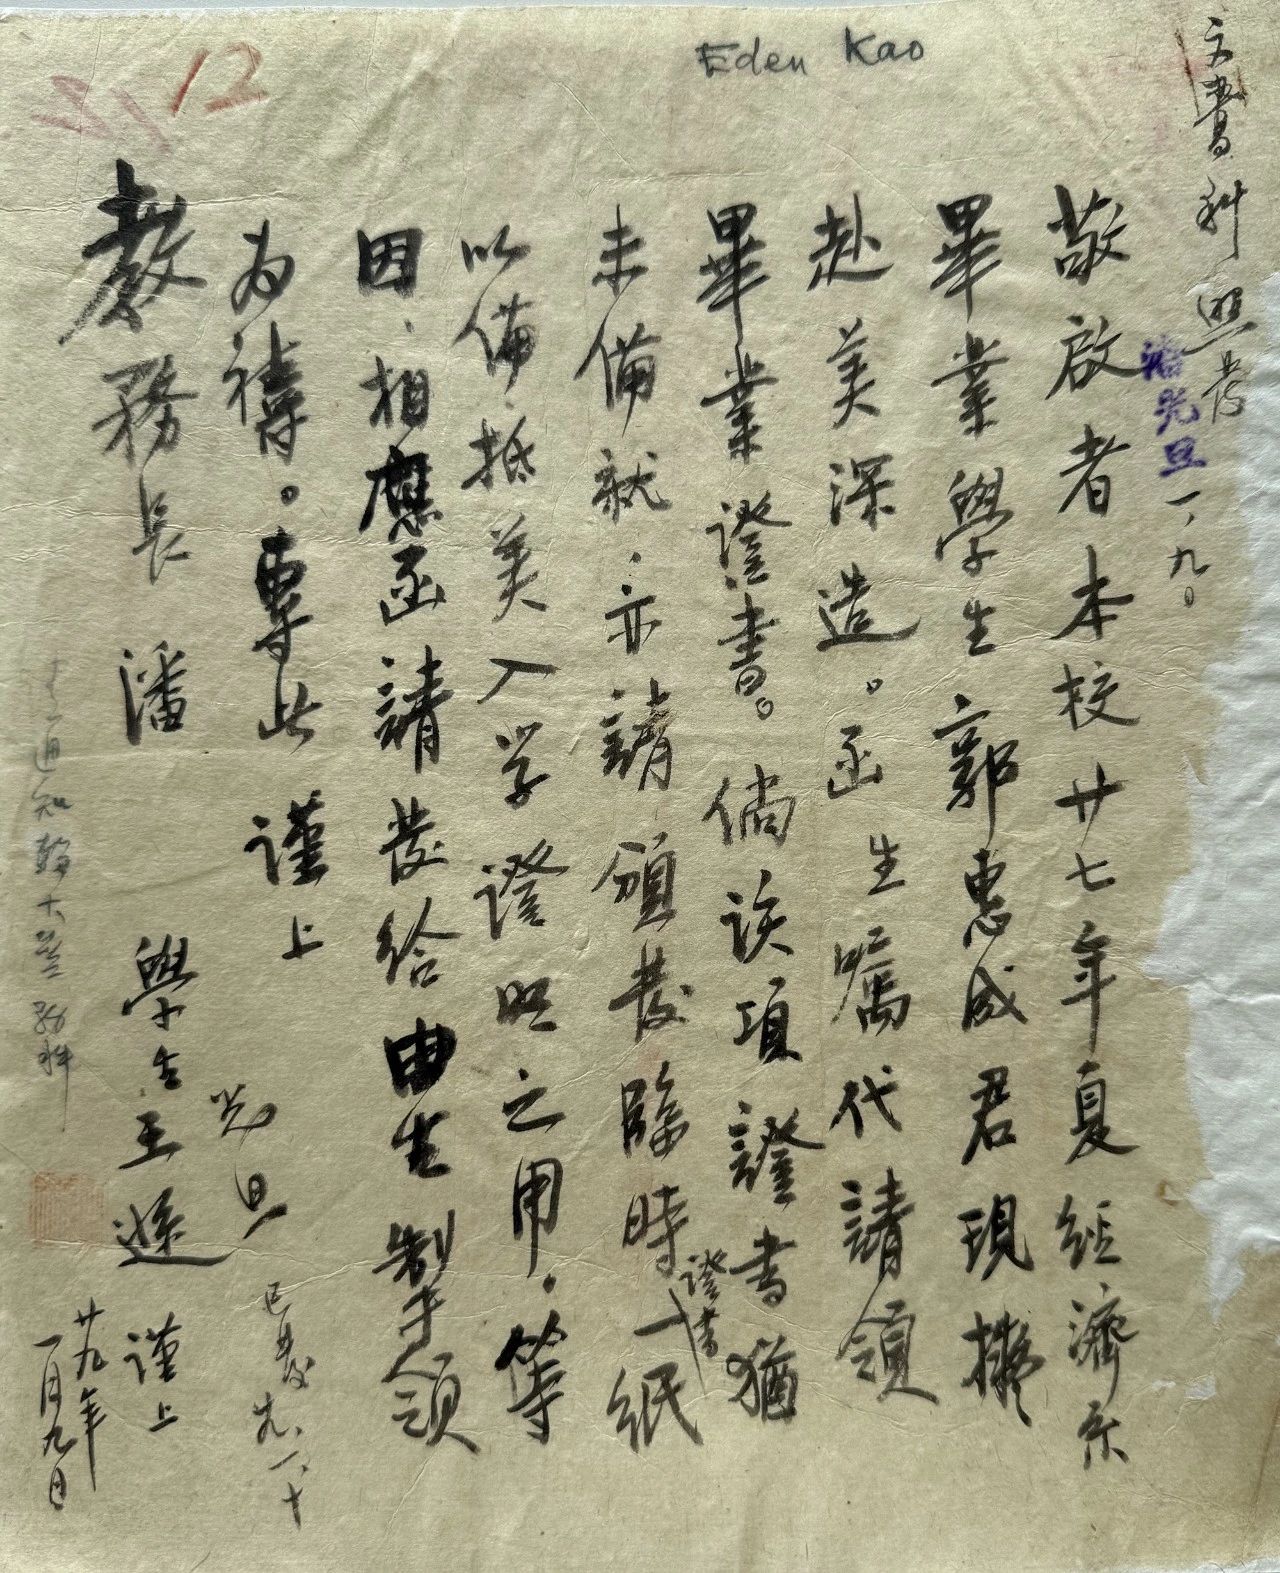 Eden Kao
12
文書科照發
潘光旦
一、九日
敬啟者本校廿七年夏經濟系
畢業學生郭惠成君現擬
赴美深造。函生囑代請領
畢業證書。倘該項證書猶
未備就.亦請頒發臨時證書一紙
以備抵美入学證明之用。等
因、相應函請發給由生製手領
为禱。專此謹上
教務長潘
光旦
學生王遜謹上
廿九年
一月九日
已發 一、十